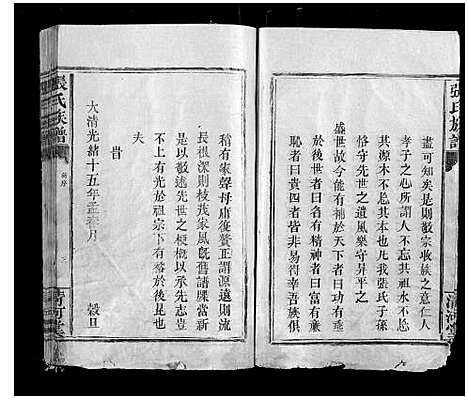 張氏族譜
盡可知矣是則敬宗收族之意仁人
孝子之心所謂人不忘其祖水不忘
其源木不忘其本也凡我張氏子孫
恪守先世之遺風樂守昇平之
盛世故今能有補於天下者曰功有垂
於後世者曰名有精神者曰富有廉
恥者曰貴四者皆非易得幸吾族俱
清河堂
稍有家聲毋庸復贅正謂源遠則流
長根深則枝茂家風旣舊譜牒當新
是以敬述先世之梗概以承先志豈
不上有光於祖宗下有裕於後昆也
夫
旹
大清光緒十五年孟春月 穀旦
張氏族譜
序
清河堂